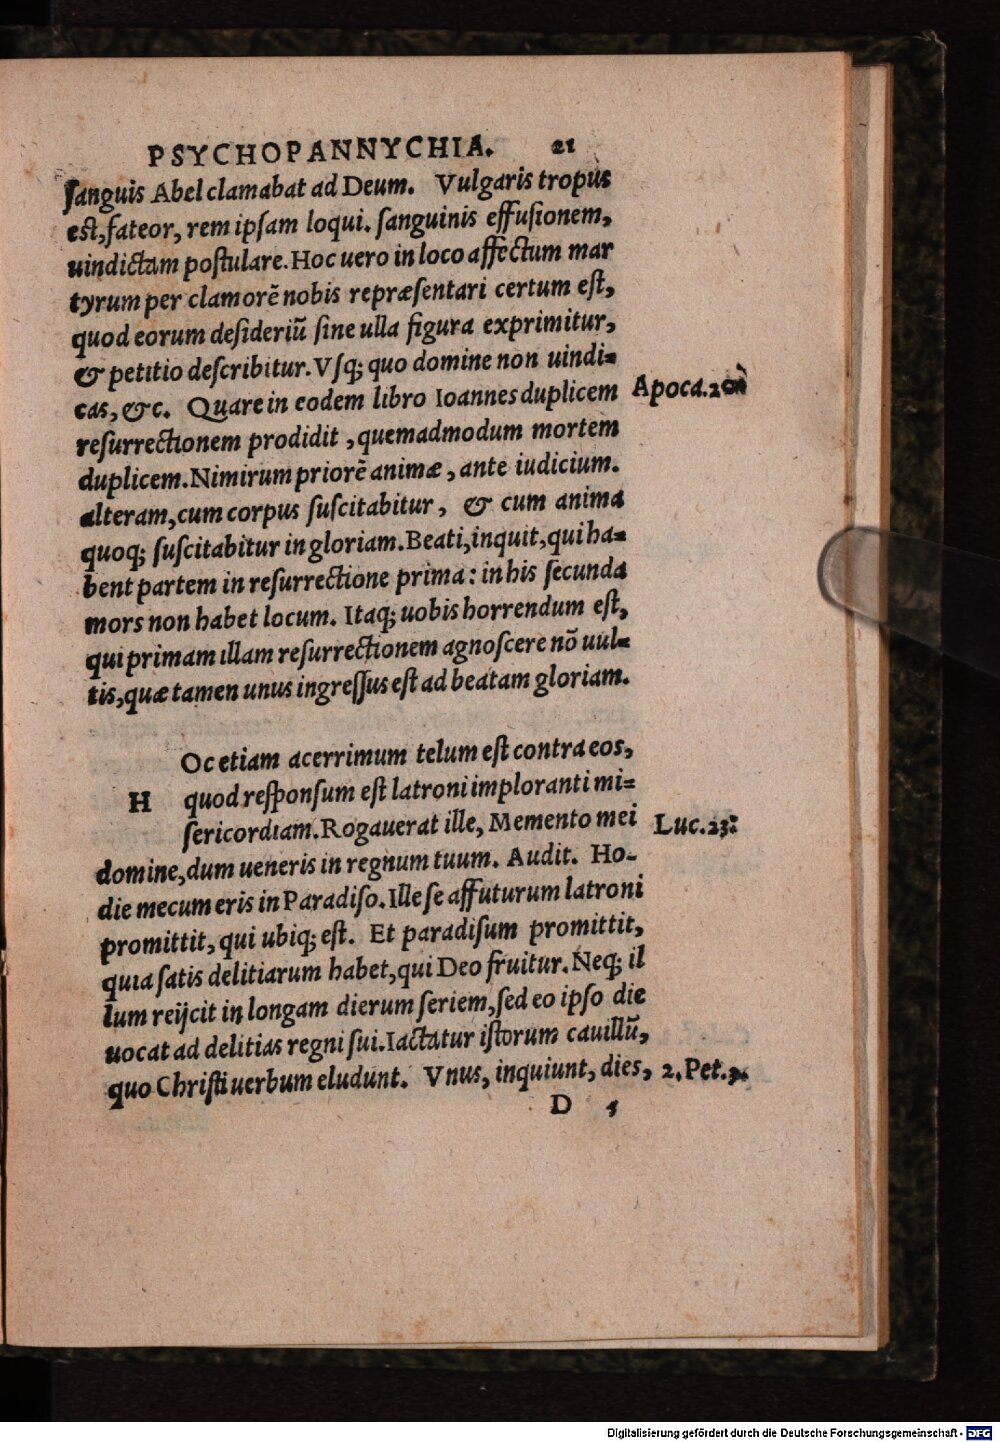 PSYCHOPANNYCHIA. 21
ſanguis Abel clamabat ad Deum. Vulgaris tropus
eſt, fateor, rem ipſam loqui. ſanguinis effuſionem,
uindictam poſtulare. Hoc uero in loco affectum mar
tyrum per clamorē nobis repræſentari certum eſt,
quod eorum deſideriū ſine ulla figura exprimitur,
& petitio deſcribitur. Vſq; quo domine non uindi=
cas, &c. Quare in eodem libro Ioannes duplicem Apoca.20
reſurrectionem prodidit, quemadmodum mortem
duplicem. Nimirum priorē animæ, ante iudicium.
alteram, cum corpus ſuſcitabitur, & cum anima
quoq; ſuſcitabitur in gloriam. Beati, inquit, qui ha=
bent partem in reſurrectione prima: in his ſecunda
mors non habet locum. Itaq; uobis horrendum eſt,
qui primam illam reſurrectionem agnoſcere nō uul=
tis, quæ tamen unus ingreſſus eſt ad beatam gloriam.
Oc etiam acerrimum telum eſt contra eos,
H quod reſponſum eſt latroni imploranti mi=
ſericordiam. Rogauerat ille, Memento mei Luc.23:
domine, dum ueneris in regnum tuum. Audit. Ho-
die mecum eris in Paradiſo. Ille ſe affuturum latroni
promittit, qui ubiq; eſt. Et paradiſum promittit,
quia ſatis delitiarum habet, qui Deo fruitur. Neq; il
lum reijcit in longam dierum ſeriem, ſed eo ipſo die
uocat ad delitias regni ſui. Iactatur iſtorum cauillū,
quo Chriſti uerbum eludunt. Vnus, inquiunt, dies, 2. Pet.3.
D 5
Digitalisierung gefördert durch die Deutsche Forschungsgemeinschaft - DFG